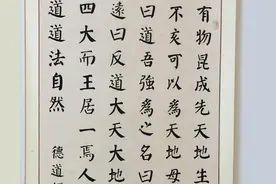 有物昆成先天地生
不亥可以為天地母
曰道吾強為之名曰
遠曰反道大天大地
四大而王居一焉人
道道法自然 德道